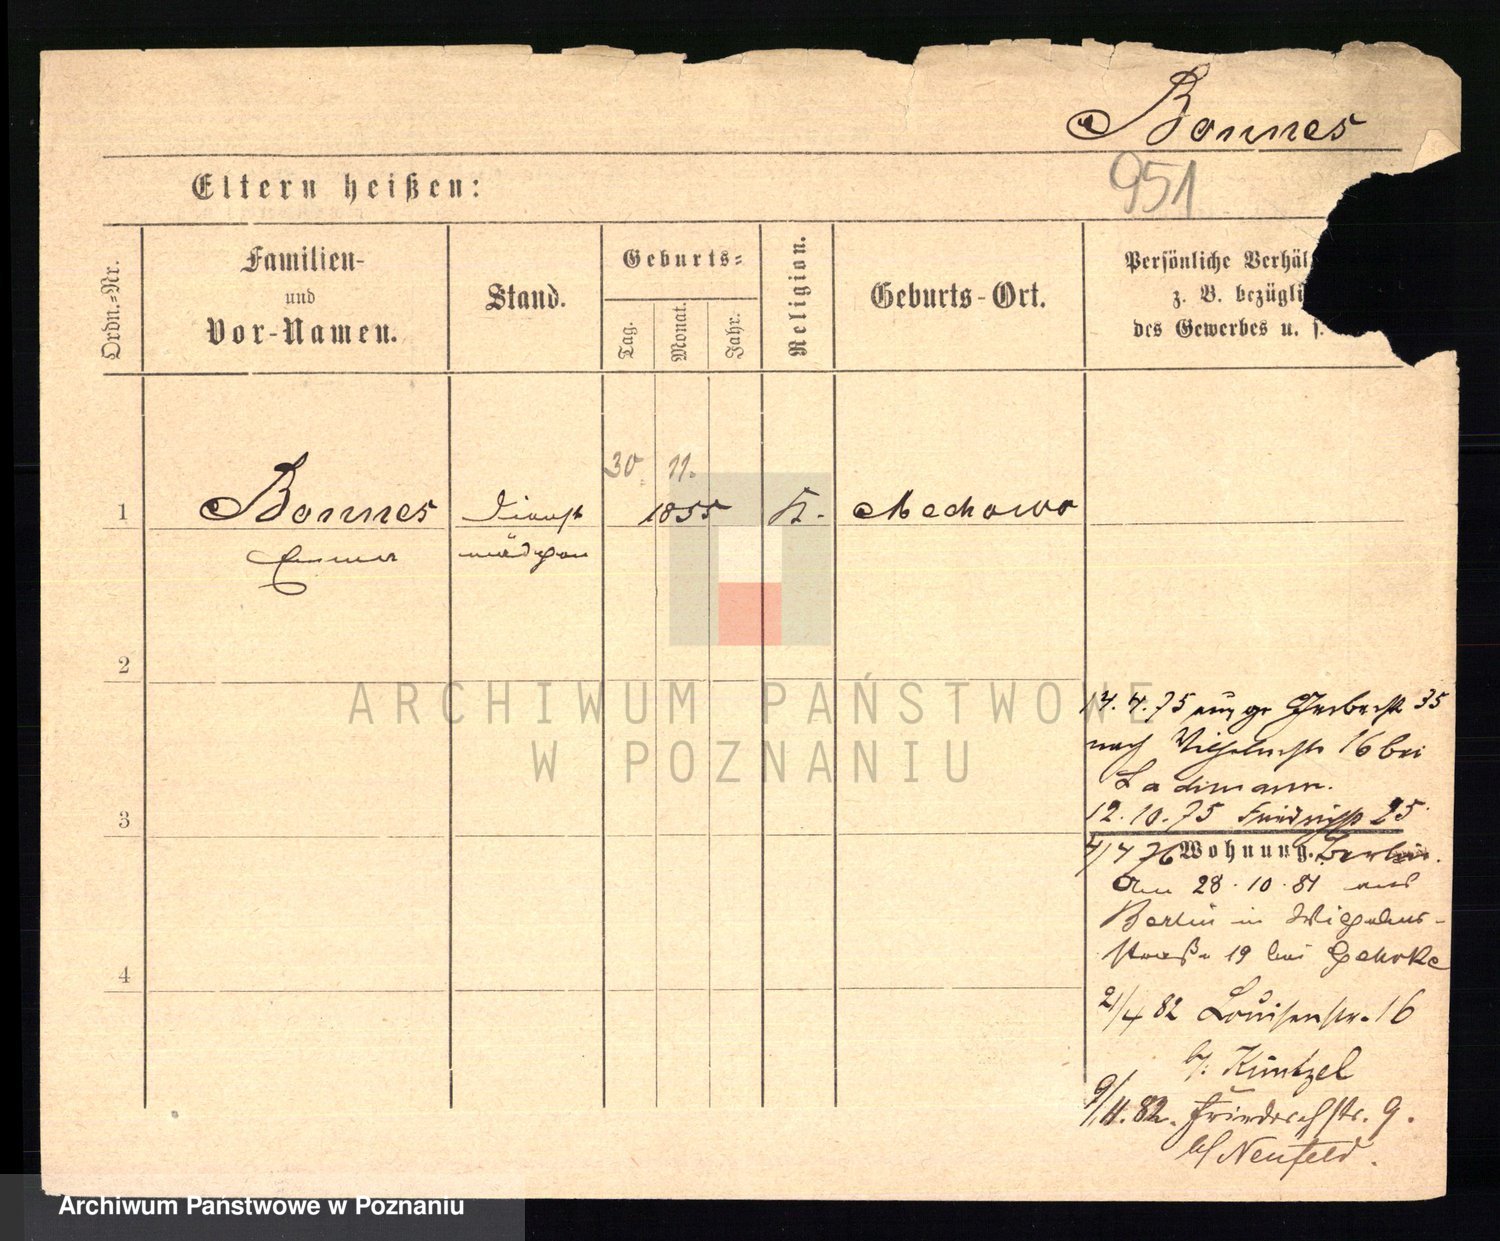 Bonnes
951
Eltern heißen:
Ordn.-Nr.
Familien-
und
Vor-Namen.
Stand.
Geburts-
Tag.
Monat.
Jahr.
Religion.
Geburts-Ort.
Persönliche Verhäl
z. B. bezügli
des Gewerbes u. s.
30. 11.
1 Bonnes Dienst 1855 K. Mechowo
Emma mädchen
2
ARCHIWUM PAŃSTWOWE
W POZNANIU
14. 4. 75 35
nach Wilhelmstr 16 bei
Ladimann.
3
12. 10. 75 Friedrichst 25
4/4 76 Wohnung. Berlin.
Am 28. 10. 81 aus
Berlin in Wilhelms-
straße 19 bei Gehrke
4
21/4 82 Louisenstr. 16
b/. Küntzel
9/11. 82. Friedrichstr. 9.
b/ Neufeld.
Archiwum Państwowe w Poznaniu